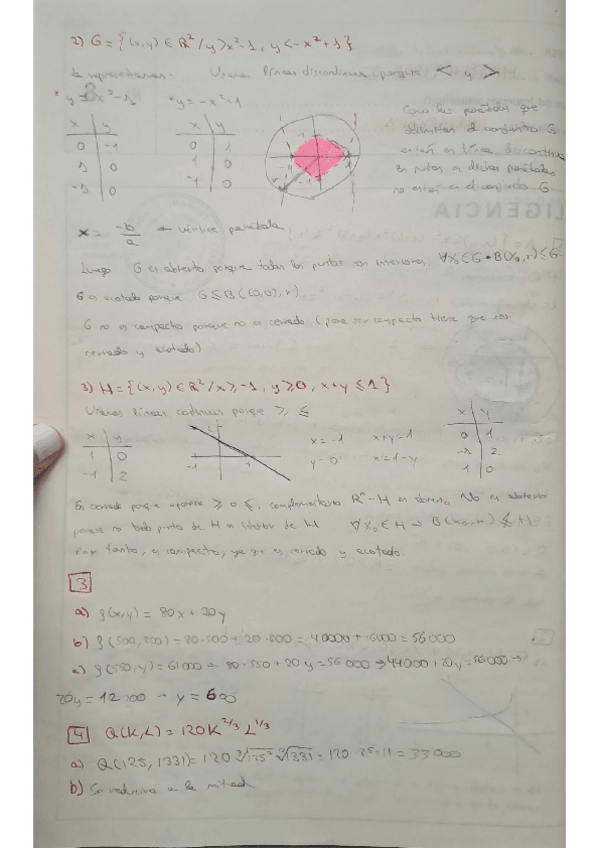 2) G = {(x,y) ∈ R² / y > x²-1, y < -x²+1}
Lo representamos. Usamos líneas discontinuas porque < y >
* y = x²-1
* y = -x²+1
x y
0 -1
1 0
-1 0
x y
0 1
1 0
-1 0
Como las parábolas que
delimitan el conjunto G
están en línea discontinua
los puntos en dichas parábolas
no están en el conjunto G
x = -b/a → vértice parábola
Luego G es abierto porque todos los puntos son interiores, ∀x₀ ∈ G → B(x₀, r) ⊆ G
G es acotado porque G ⊆ B((0,0), r)
G no es compacto porque no es cerrado (para ser compacto tiene que ser
cerrado y acotado)
3) H = {(x,y) ∈ R² / x ≥ -1, y ≥ 0, x+y ≤ 1}
Usamos líneas continuas porque ≥, ≤
x y
1 0
-1 2
2
-1 1
x = -1
x+y = 1
y = 0
x = 1-y
x y
0 1
-1 2
1 0
Es cerrado porque aparece ≥ o ≤, complementario R² - H es abierto. No es abierto
porque no todo punto de H es interior de H ∀x₀ ∈ H → B(x₀, r) ⊈ H
Por tanto, es compacto, ya que es cerrado y acotado.
3
a) f(x,y) = 80x + 20y
b) f(500, 800) = 80·500 + 20·800 = 40000 + 16000 = 56000
c) f(550, y) = 61000 → 80·550 + 20y = 56000 → 44000 + 20y = 56000 →
20y = 12000 → y = 600
4 Q(K,L) = 120K^{2/3} L^{1/3}
a) Q(125, 1331) = 120 ∛125² ∛1331 = 120·25·11 = 33000
b) Se reduciría a la mitad